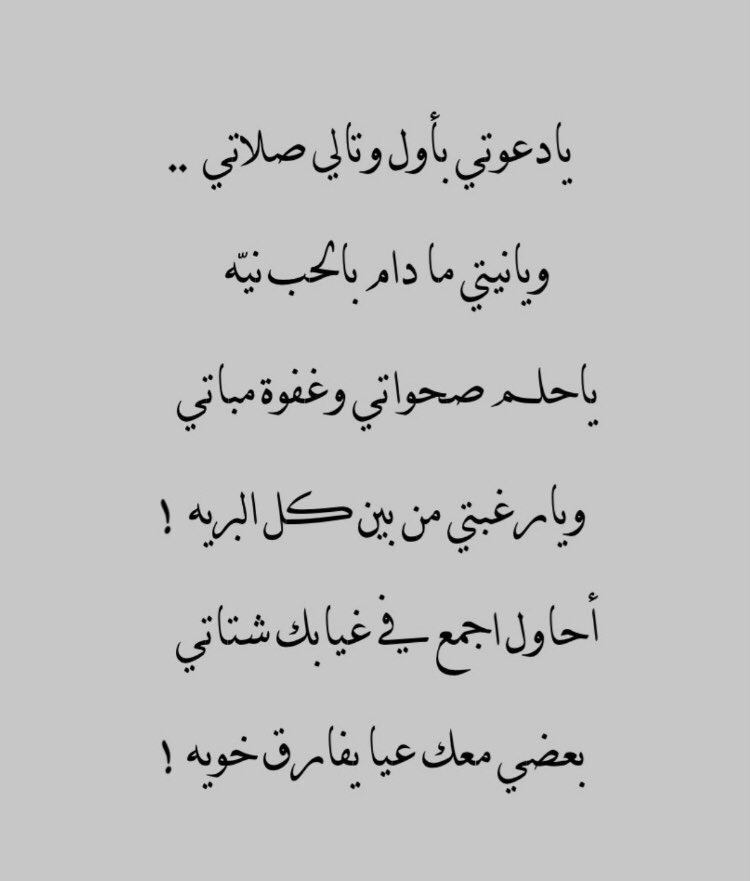 يادعوتي بأول وتالي صلاتي ..
ويانيتي ما دام بالحب نيّه
ياحلـم صحواتي وغفوة مباتي
ويارغبتي من بين كل البريه !
أحاول اجمع في غيابك شتاتي
بعضي معك عيا يفارق خويه !